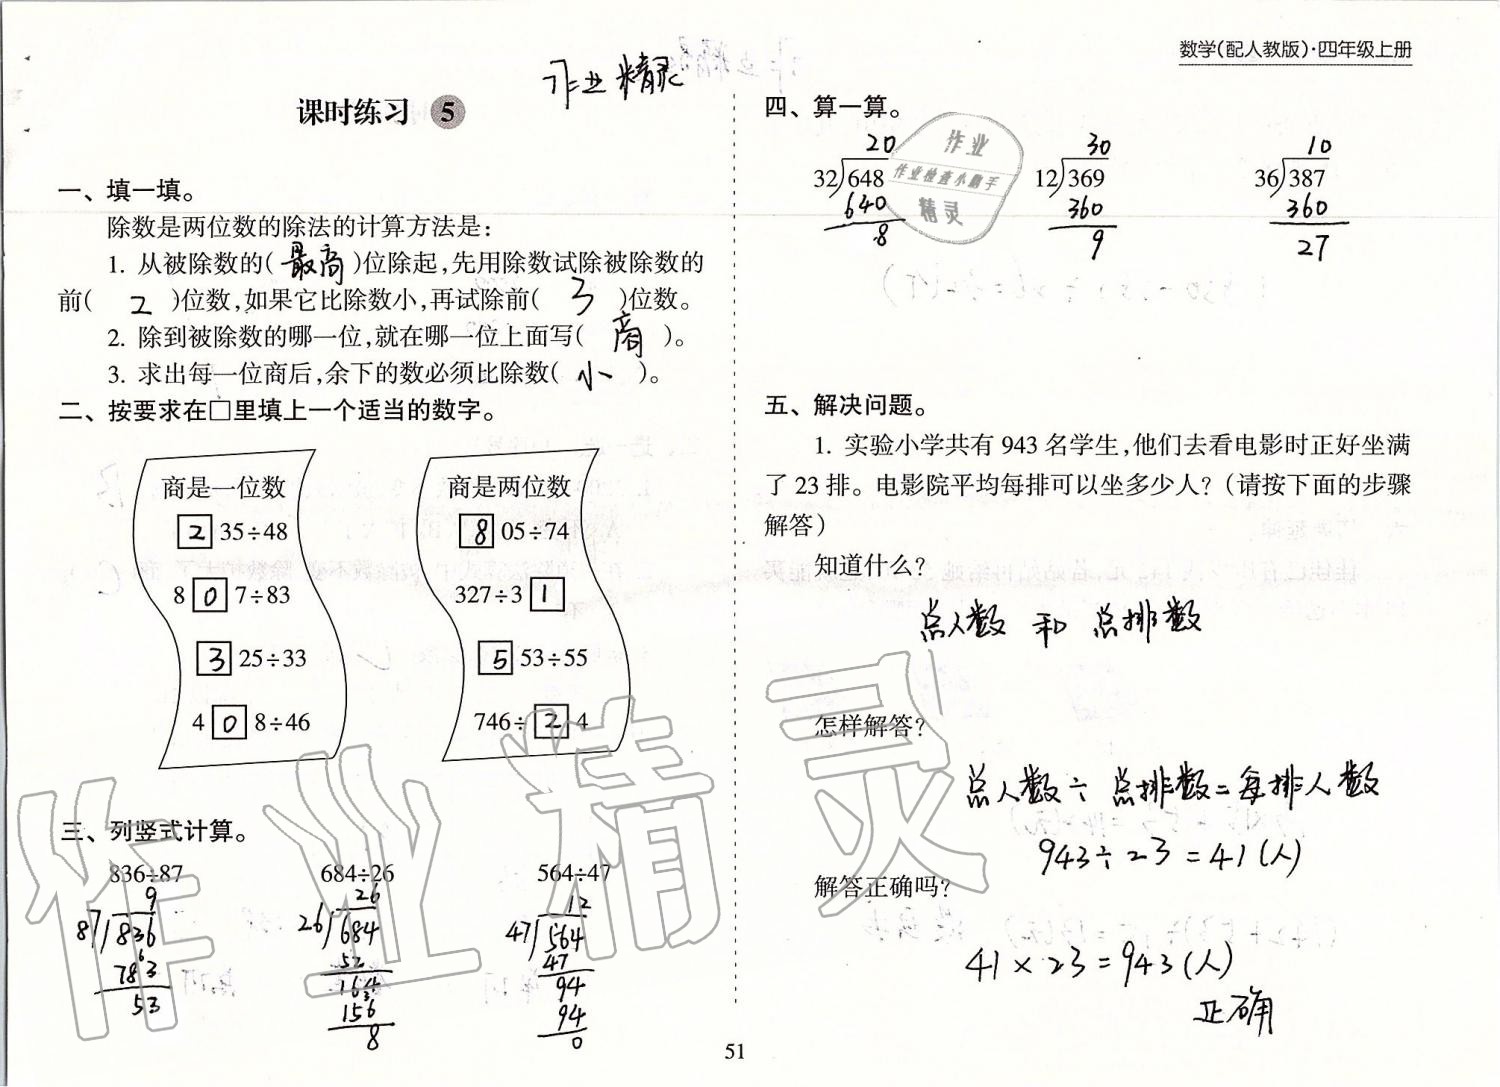 数学(配人教版)·四年级上册
作业精灵
课时练习 5
一、填一填。
除数是两位数的除法的计算方法是:
1. 从被除数的( 最高 )位除起,先用除数试除被除数的
前( 2 )位数,如果它比除数小,再试除前( 3 )位数。
2. 除到被除数的哪一位,就在哪一位上面写( 商 )。
3. 求出每一位商后,余下的数必须比除数( 小 )。
二、按要求在□里填上一个适当的数字。
商是一位数
2 35÷48
8 0 7÷83
3 25÷33
4 0 8÷46
商是两位数
8 05÷74
327÷3 1
5 53÷55
746÷ 2 4
三、列竖式计算。
836÷87
9
87 836
783
6
53
684÷26
26
26 684
52
164
3
156
8
564÷47
12
47 564
47
94
94
0
四、算一算。
20
32 648
640
8
30
12 369
360
9
10
36 387
360
27
作业
作业检查小帮手
精灵
五、解决问题。
1. 实验小学共有 943 名学生,他们去看电影时正好坐满
了 23 排。电影院平均每排可以坐多少人?(请按下面的步骤
解答)
知道什么?
总人数 和 总排数
怎样解答?
总人数÷总排数=每排人数
943÷23=41(人)
解答正确吗?
41×23=943(人)
正确
作业精灵
51